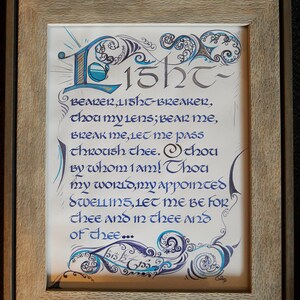 Light-
bearer, light-breaker,
thou my lens; bear me,
break me, let me pass
through thee. O thou
by whom I am! Thou
my world, my appointed
dwelling, let me be for
thee and in thee and
of thee...